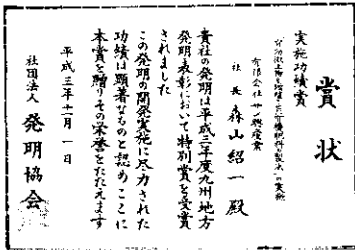 賞状
実施功績賞
有限会社
社長 森山紹一殿
貴社の発明は平成三年度九州地方
発明表彰において特別賞を受賞
されました
この発明の開発実施に尽力された
功績は顕著なものと認めここに
本賞を贈りその栄誉をたたえます
平成三年十一月一日
社団法人 発明協会